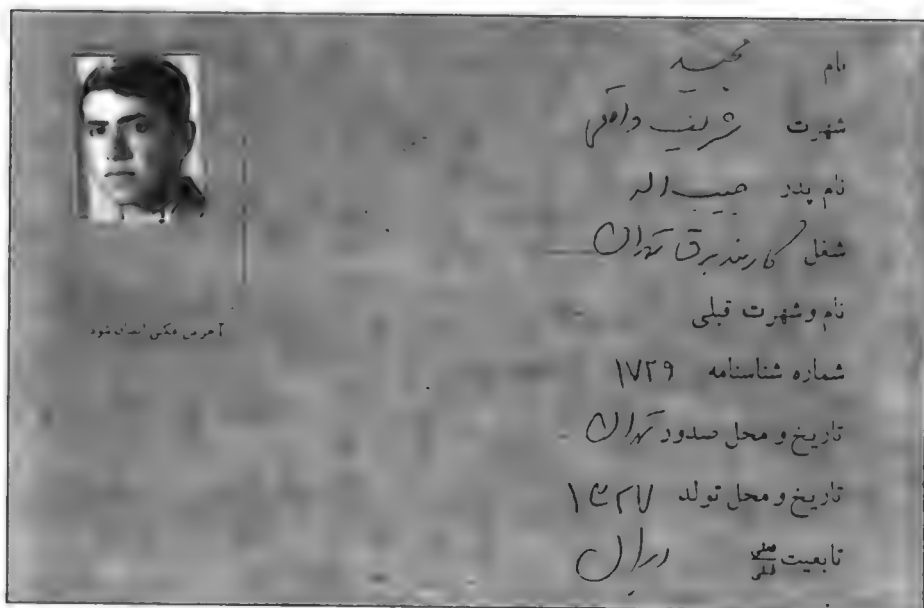 نام مجید
شهرت شریف واقفی
نام پدر حبیب اله
شغل کارمند برق تهران
نام و شهرت قبلی -
شماره شناسنامه ۱۷۲۹
تاریخ و محل صدور تهران -
تاریخ و محل تولد ۱۳۲۷
تابعیت فعلی قبلی ایران
آخرین عکس الصاق شود